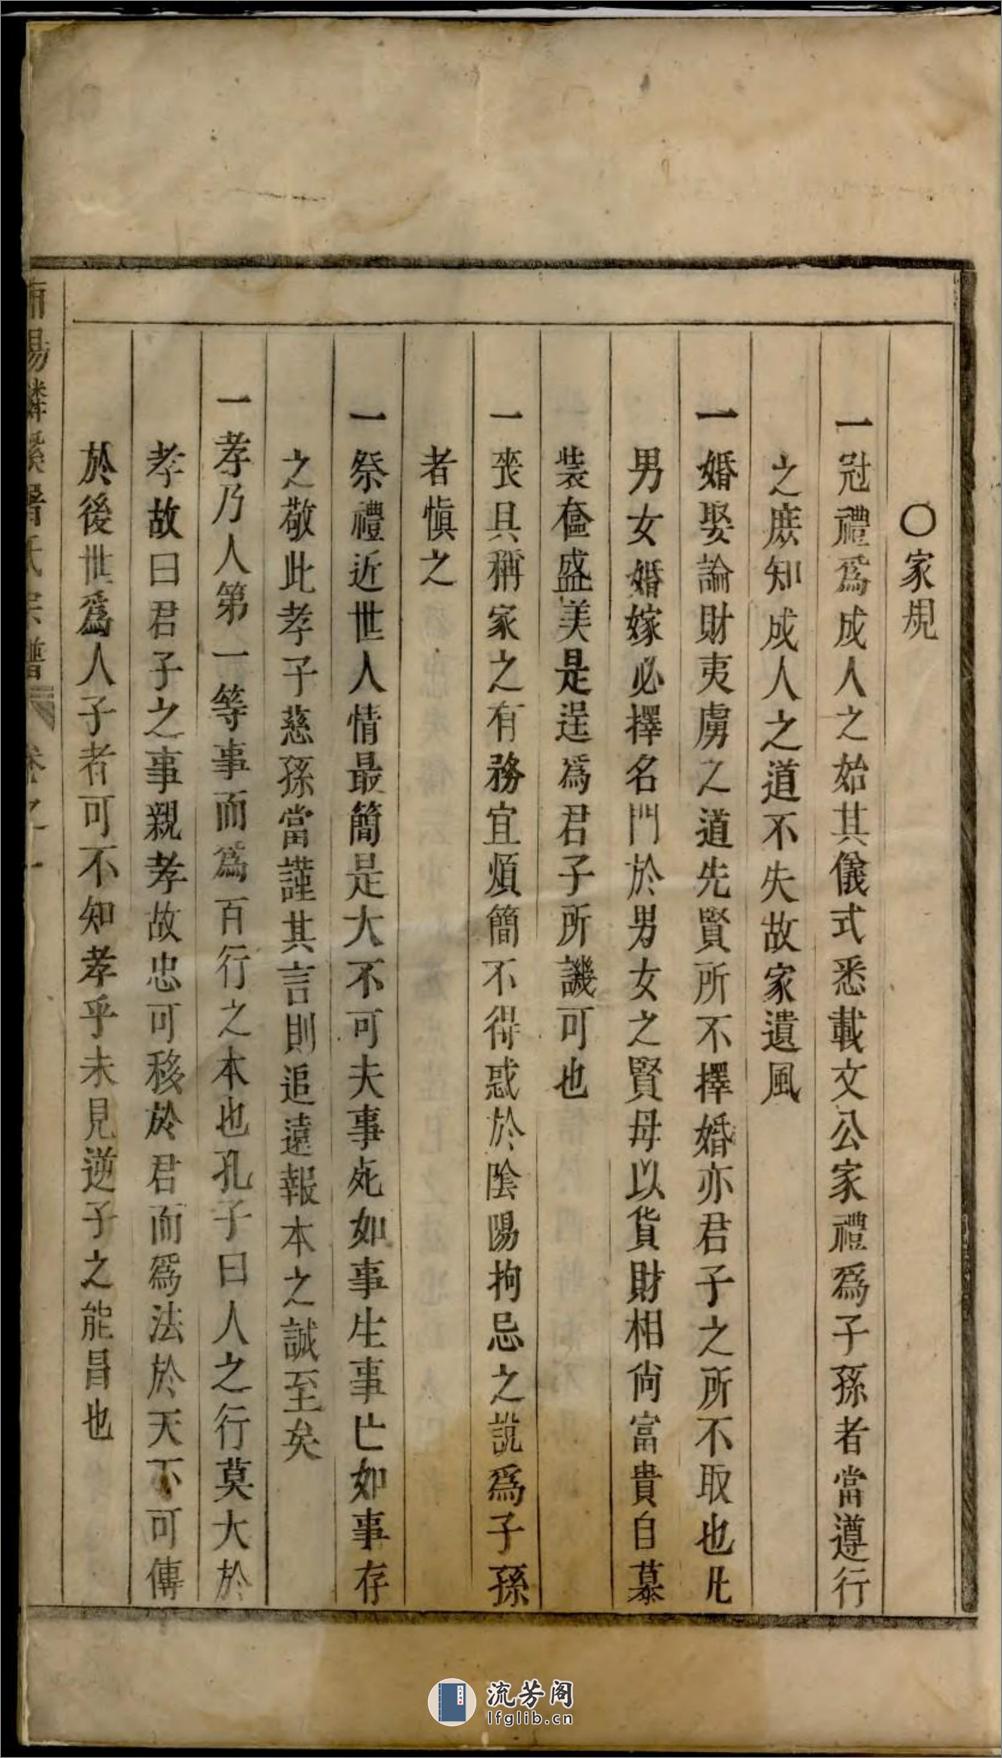 〇家規
一冠禮爲成人之始其儀式悉載文公家禮爲子孫者當遵行
之庶知成人之道不失故家遺風
一婚娶論財夷虜之道先賢所不擇婚亦君子之所不取也凡
男女婚嫁必擇名門於男女之賢毋以貨財相尙富貴自慕
裝奩盛美是逞爲君子所譏可也
一喪具稱家之有務宜煩簡不得惑於陰陽拘忌之說爲子孫
者愼之
一祭禮近世人情最簡是大不可夫事死如事生事亡如事存
之敬此孝子慈孫當謹其言則追遠報本之誠至矣
一孝乃人第一等事而爲百行之本也孔子曰人之行莫大於
孝故曰君子之事親孝故忠可移於君而爲法於天下可傳
於後世爲人子者可不知孝乎未見逆子之能昌也
陽 氏宗譜 卷之一
流芳阁
lfglib.cn